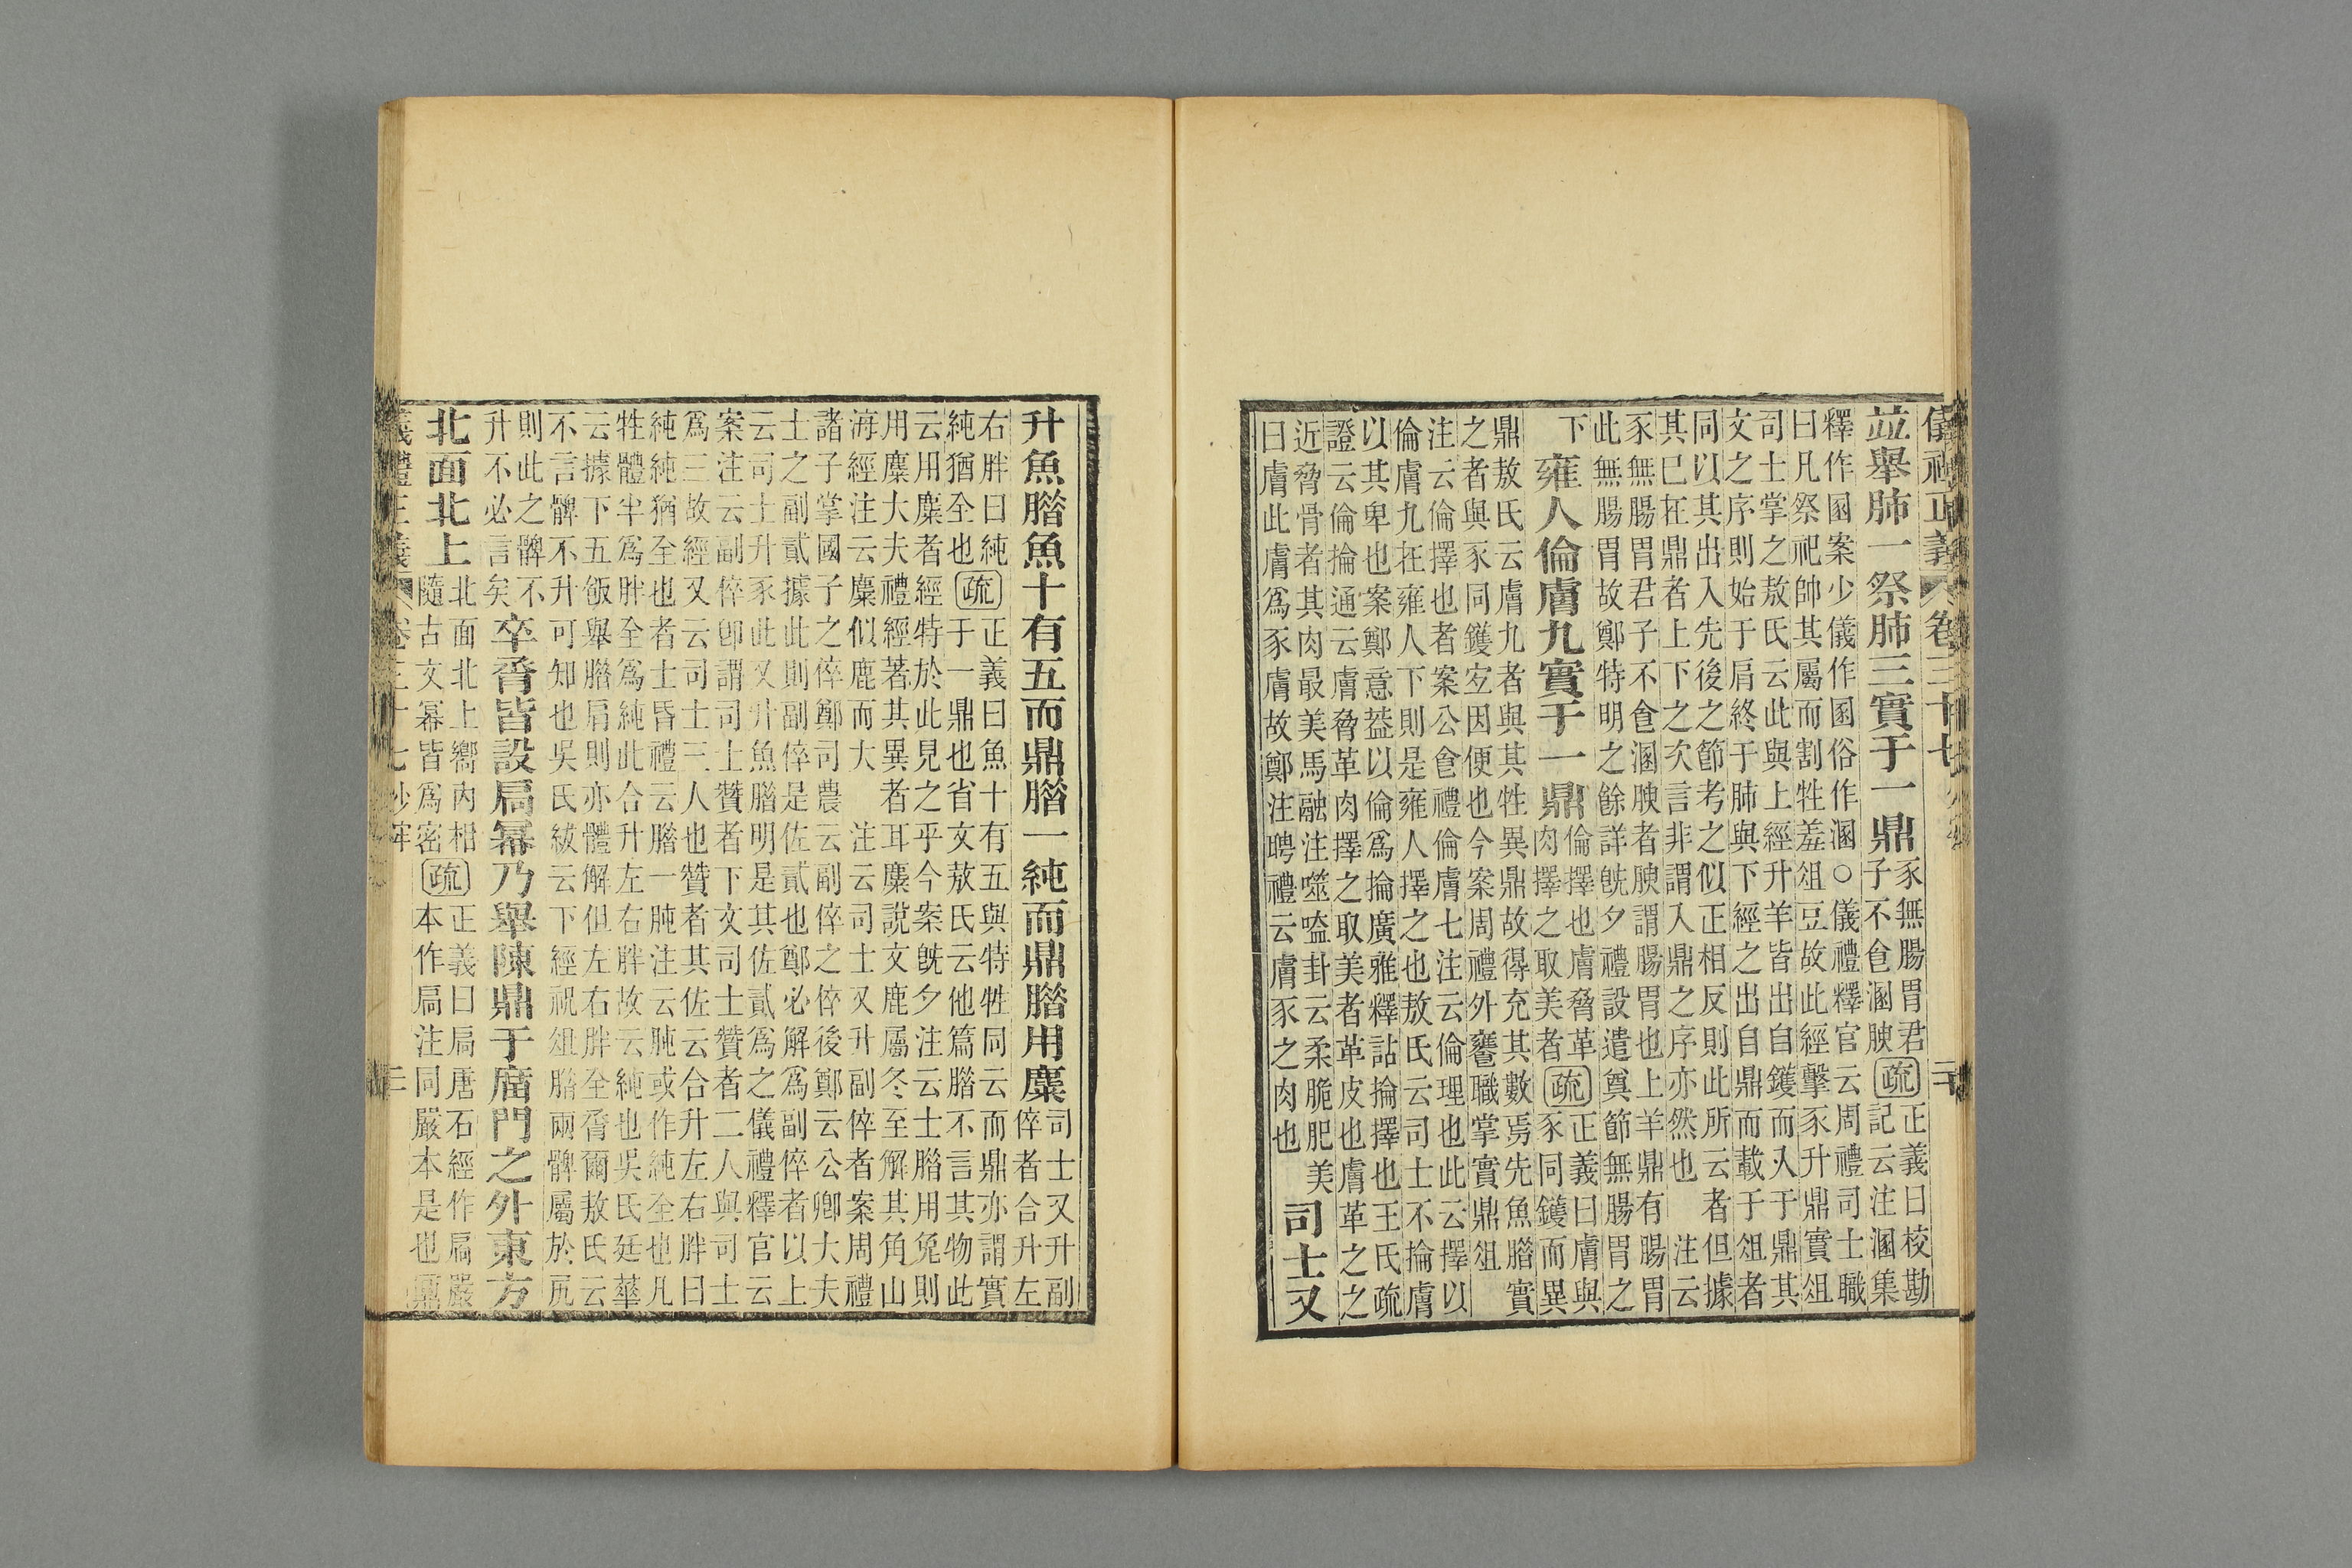 儀禮正義 卷三十七
竝舉肺一祭肺三實于一鼎
豕無腸胃君
子不食溷腴
疏
正義曰校勘
記云注溷集
釋作圂案少儀作圂俗作溷○儀禮釋官云周禮司士職
曰凡祭祀帥其屬而割牲羞俎豆故此經擊豕升鼎實俎
司士掌之敖氏云此與上經升羊皆出自鑊而入于鼎其
文之序則始于肩終于肺與下經之出自鼎而載于俎者
同以其出入先後之節考之似正相反則此所云者但據
其已在鼎者上下之次言非謂入鼎之序亦然也 注云
豕無腸胃君子不食溷腴者腴謂腸胃也上羊鼎有腸胃
此無腸胃故鄭特明之餘詳旣夕禮設遣奠節無腸胃之
下
雍人倫膚九實于一鼎
倫擇也膚脅革
肉擇之取美者
疏
正義曰膚與
豕同鑊而異
鼎敖氏云膚九者與其牲異鼎故得充其數焉先魚腊實
之者與豕同鑊宜因便也今案周禮外饔職掌實鼎俎
注云倫擇也者案公食禮倫膚七注云倫理也此云擇以
倫膚九在雍人下則是雍人擇之也敖氏云司士不掄膚
以其卑也案鄭意葢以倫爲掄廣雅釋詁掄擇也王氏疏
證云倫掄通云膚脅革肉擇之取美者革皮也膚革之之
近脅骨者其肉最美馬融注噬嗑卦云柔脆肥美
曰膚此膚爲豕膚故鄭注聘禮云膚豕之肉也
司士又
升魚腊魚十有五而鼎腊一純而鼎腊用麋
司士又升副
倅者合升左
右胖曰純
純猶全也
疏
正義曰魚十有五與特牲同云而鼎亦謂實
于一鼎也省文敖氏云他篇腊不言其物此
云用麋者經特於此見之乎今案旣夕注云士腊用兔則
用麋大夫禮經著其異者耳麋說文鹿屬冬至解其角山
海經注云麋似鹿而大 注云司士又升副倅者案周禮
諸子掌國子之倅鄭司農云副倅之倅後鄭云公卿大夫
士之副貳據此則副倅是佐貳也鄭必解爲副倅者以上
云司士升豕此又升魚腊明是其佐貳爲之儀禮釋官云
案注云副倅卽謂司士贊者下文司士贊者二人與司士
爲三故經又云司士三人也贊者其佐云合升左右胖曰
純純猶全也者士昏禮云腊一肫注云肫或作純全也凡
牲體半爲胖全爲純此合升左右胖故云純也吳氏廷華
云據下五飯舉腊肩則亦體解但左右胖全脀爾敖氏云
不言髀不升可知也吳氏紱云下經祝俎腊兩髀屬於尻
則此之髀不
升不必言矣
卒脀皆設扃冪乃舉陳鼎于庿門之外東方
北面北上
北面北上嚮內相
隨古文冪皆爲密
疏
正義曰扃唐石經作扃嚴
本作扃注同嚴本是也鼏